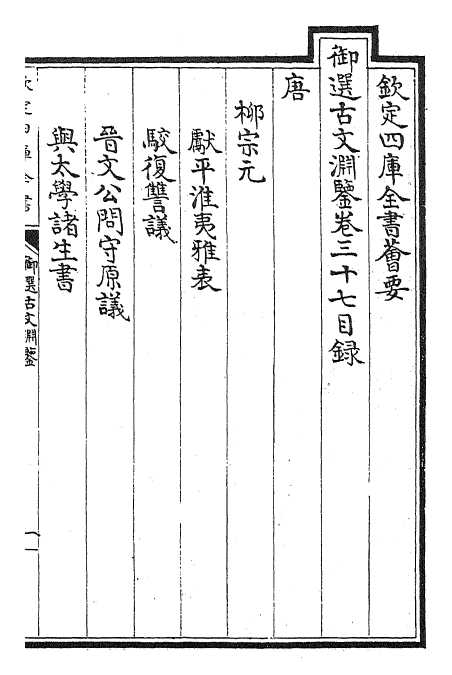 欽定四庫全書薈要
御選古文淵鑒卷三十七目録
唐
柳宗元
獻平淮夷雅表
駮復讐議
晉文公問守原議
與太學諸生書
欽定四庫全書
御選古文淵鑒
一